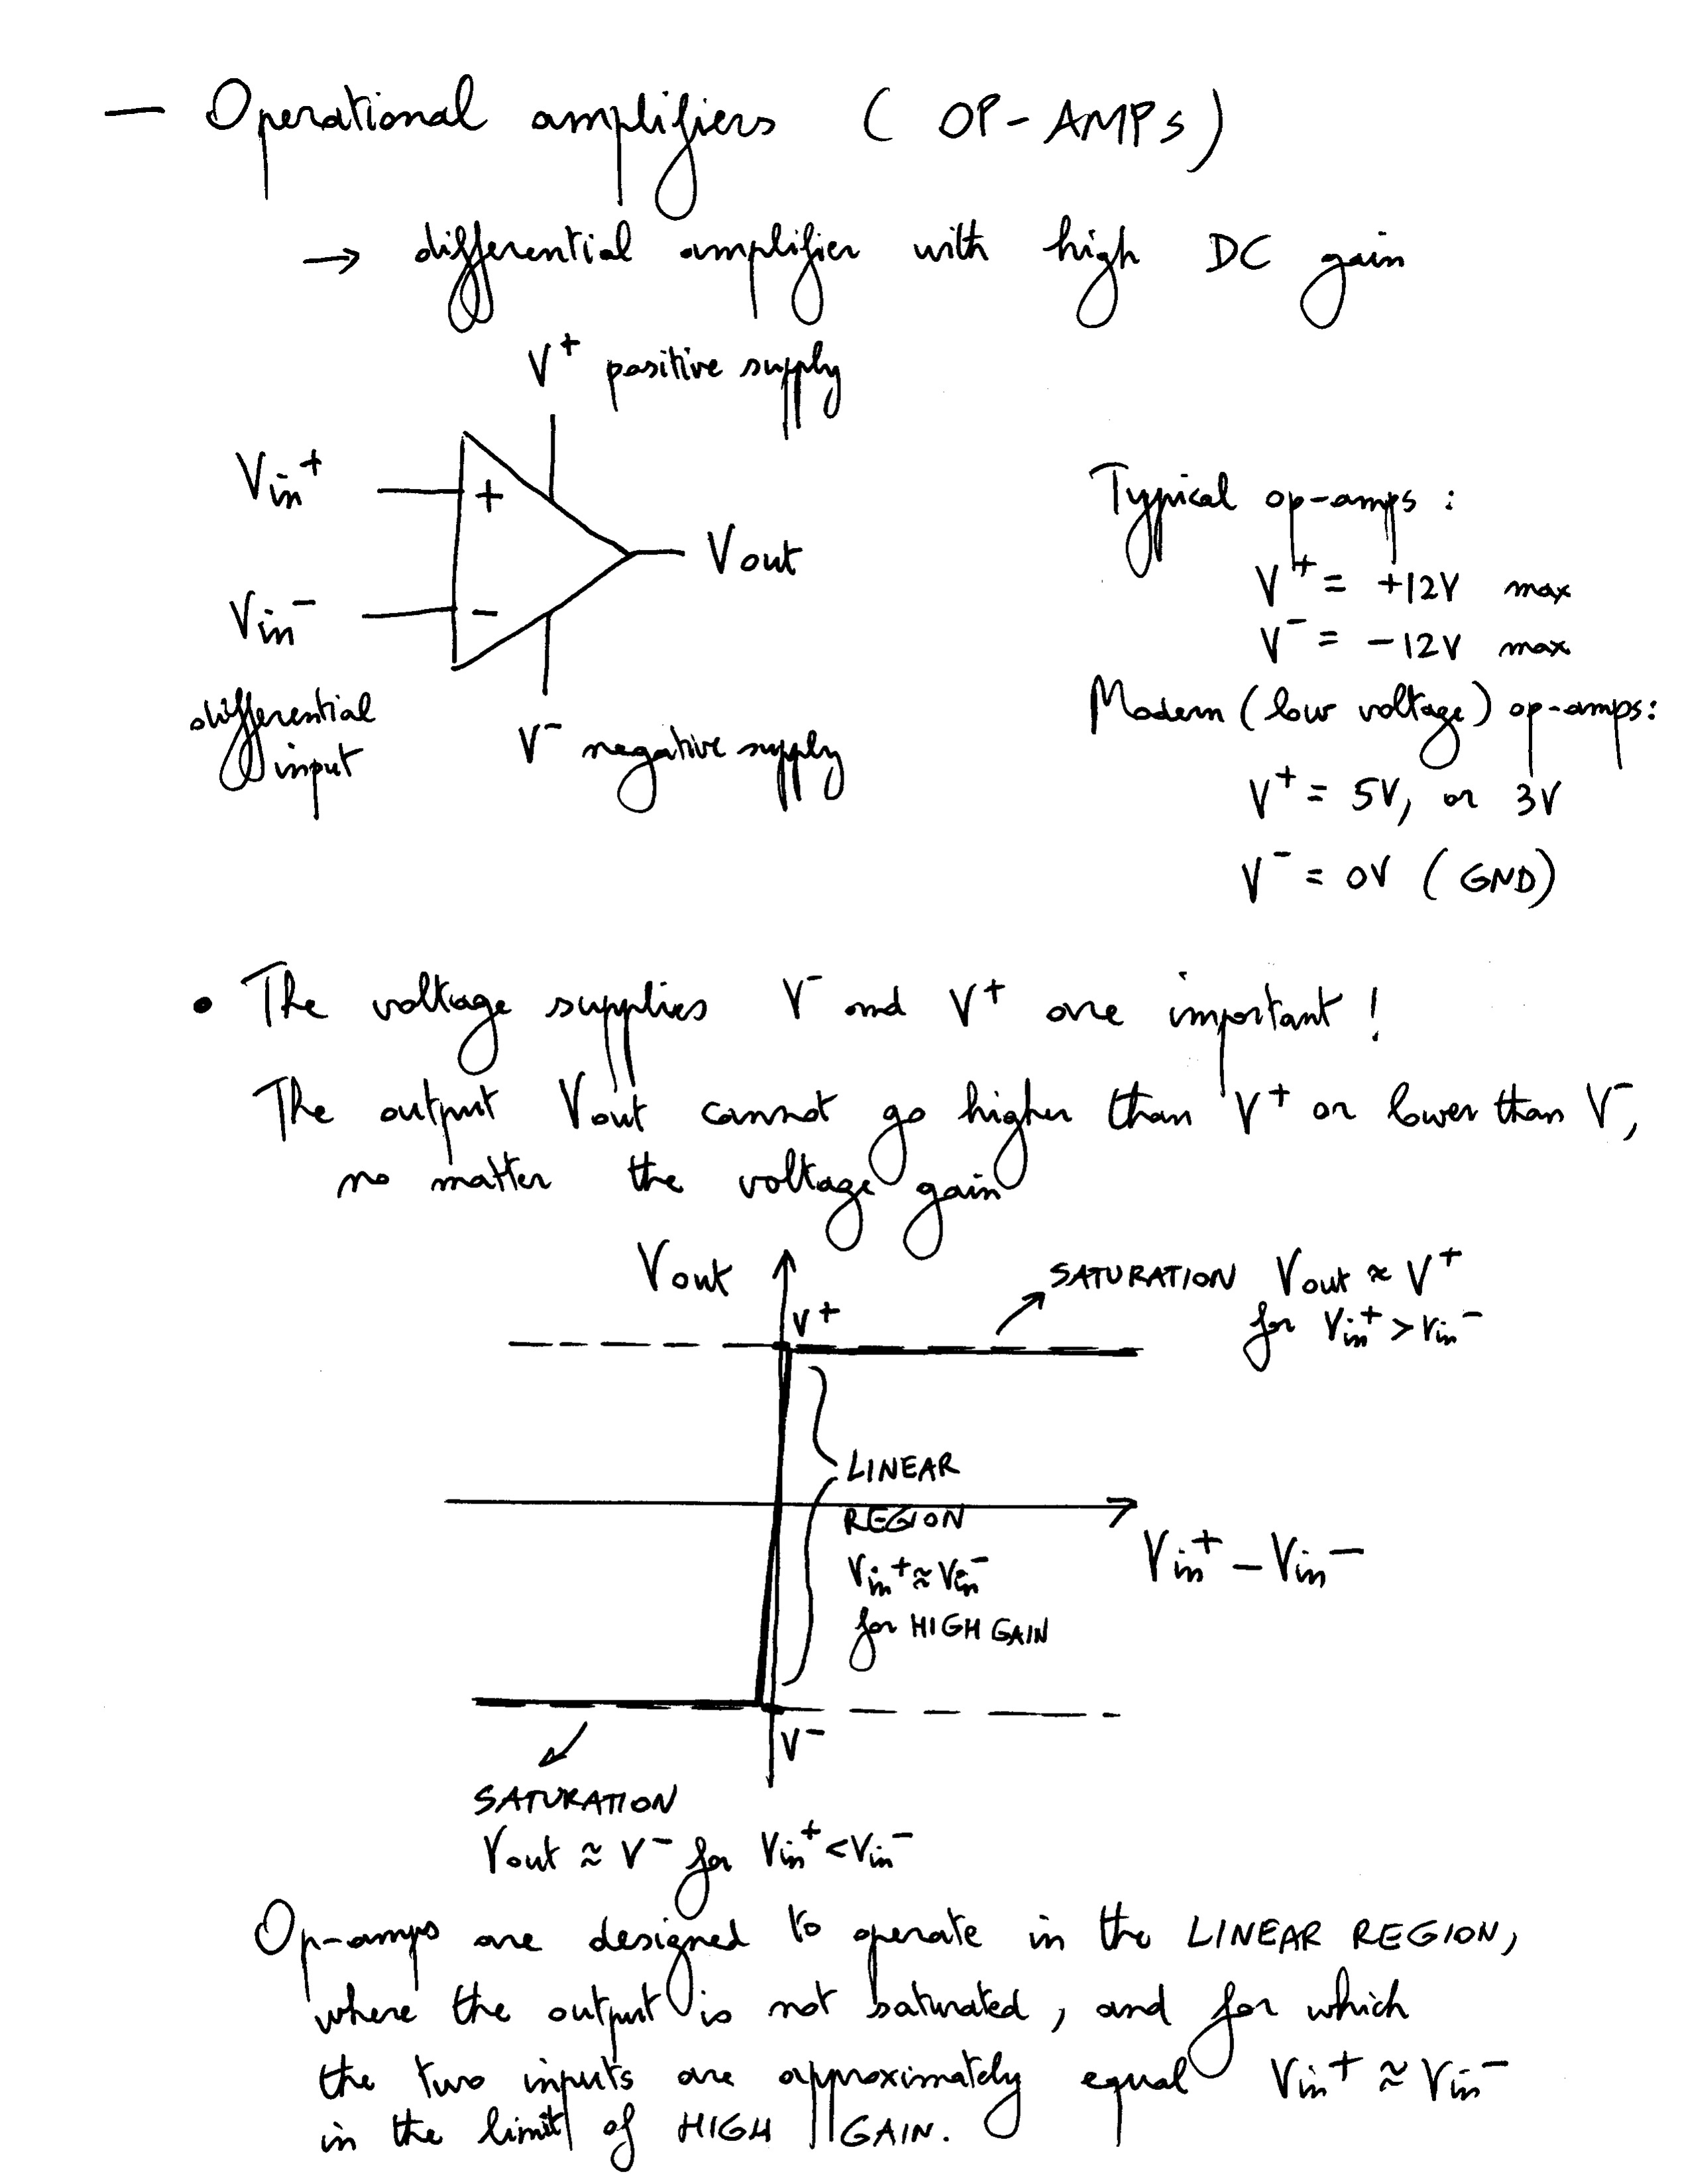 — Operational amplifiers (OP-AMPS)
→ differential amplifier with high DC gain
V⁺ positive supply
Vin⁺
+
Vout
Vin⁻
−
differential
input
V⁻ negative supply
Typical op-amps:
V⁺ = +12V max
V⁻ = -12V max
Modern (low voltage) op-amps:
V⁺ = 5V, or 3V
V⁻ = 0V (GND)
• The voltage supplies V⁻ and V⁺ are important!
The output Vout cannot go higher than V⁺ or lower than V⁻,
no matter the voltage gain
Vout
V⁺
SATURATION Vout ≈ V⁺
for Vin⁺ > Vin⁻
LINEAR
REGION
Vin⁺ ≈ Vin⁻
for HIGH GAIN
Vin⁺ − Vin⁻
V⁻
SATURATION
Vout ≈ V⁻ for Vin⁺ < Vin⁻
Op-amps are designed to operate in the LINEAR REGION,
where the output is not saturated, and for which
the two inputs are approximately equal Vin⁺ ≈ Vin⁻
in the limit of HIGH GAIN.